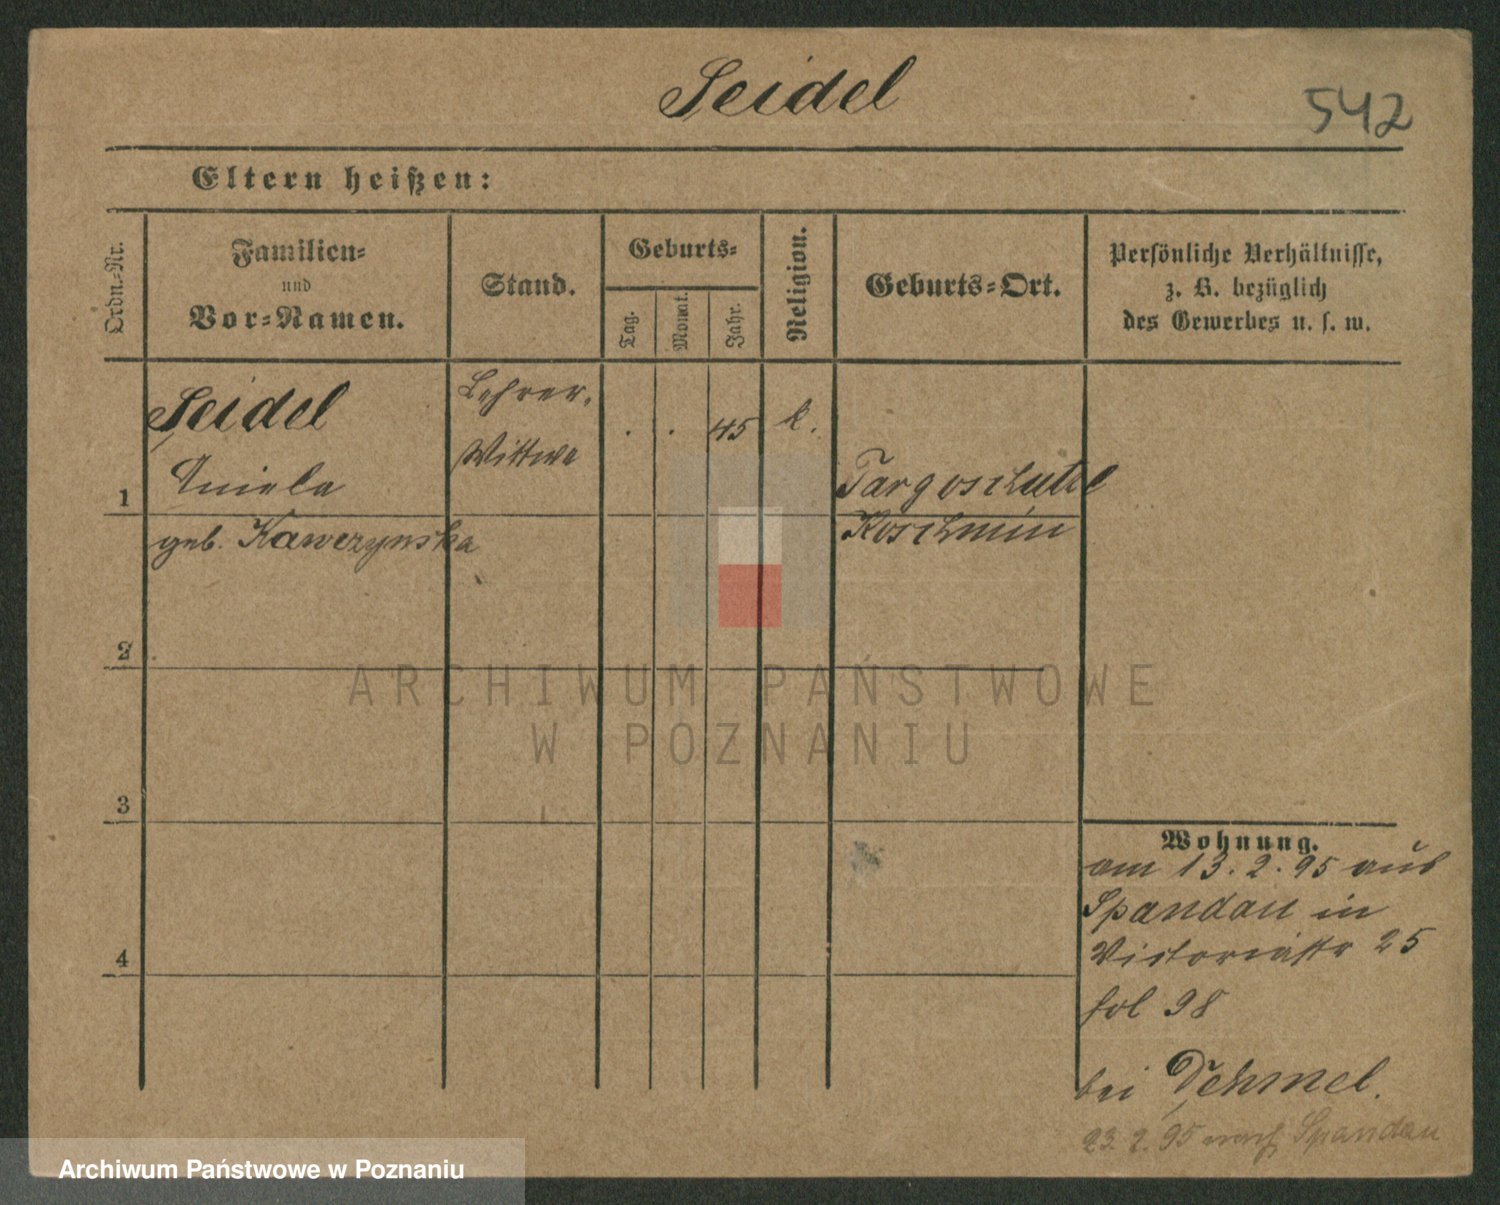 Seidel
542
Eltern heißen:
Ordn.-Nr.
Familien-
und
Vor-Namen.
Stand.
Geburts-
Tag.
Monat.
Jahr.
Religion.
Geburts-Ort.
Persönliche Verhältnisse,
z. B. bezüglich
des Gewerbes u. s. w.
1
Seidel
Aniela
geb. Kawczynska
Lehrer-
Wittwe
. . 45
k.
Targoschütz
Koschmin
2
3
4
Wohnung.
am 13.2.95 aus
Spandau in
Victoriastr 25
fol 98
bei Dehmel.
23.2.95 nach Spandau
ARCHIWUM PAŃSTWOWE
W POZNANIU
Archiwum Państwowe w Poznaniu